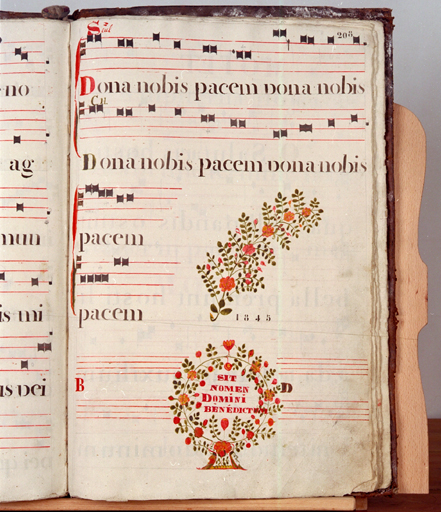 no
ag
mun
is mi
us Dei
208
Dona nobis pacem Dona nobis
Dona nobis pacem Dona nobis
pacem
pacem
1845
B
D
SIT
NOMEN
DOMINI
BENEDICTU